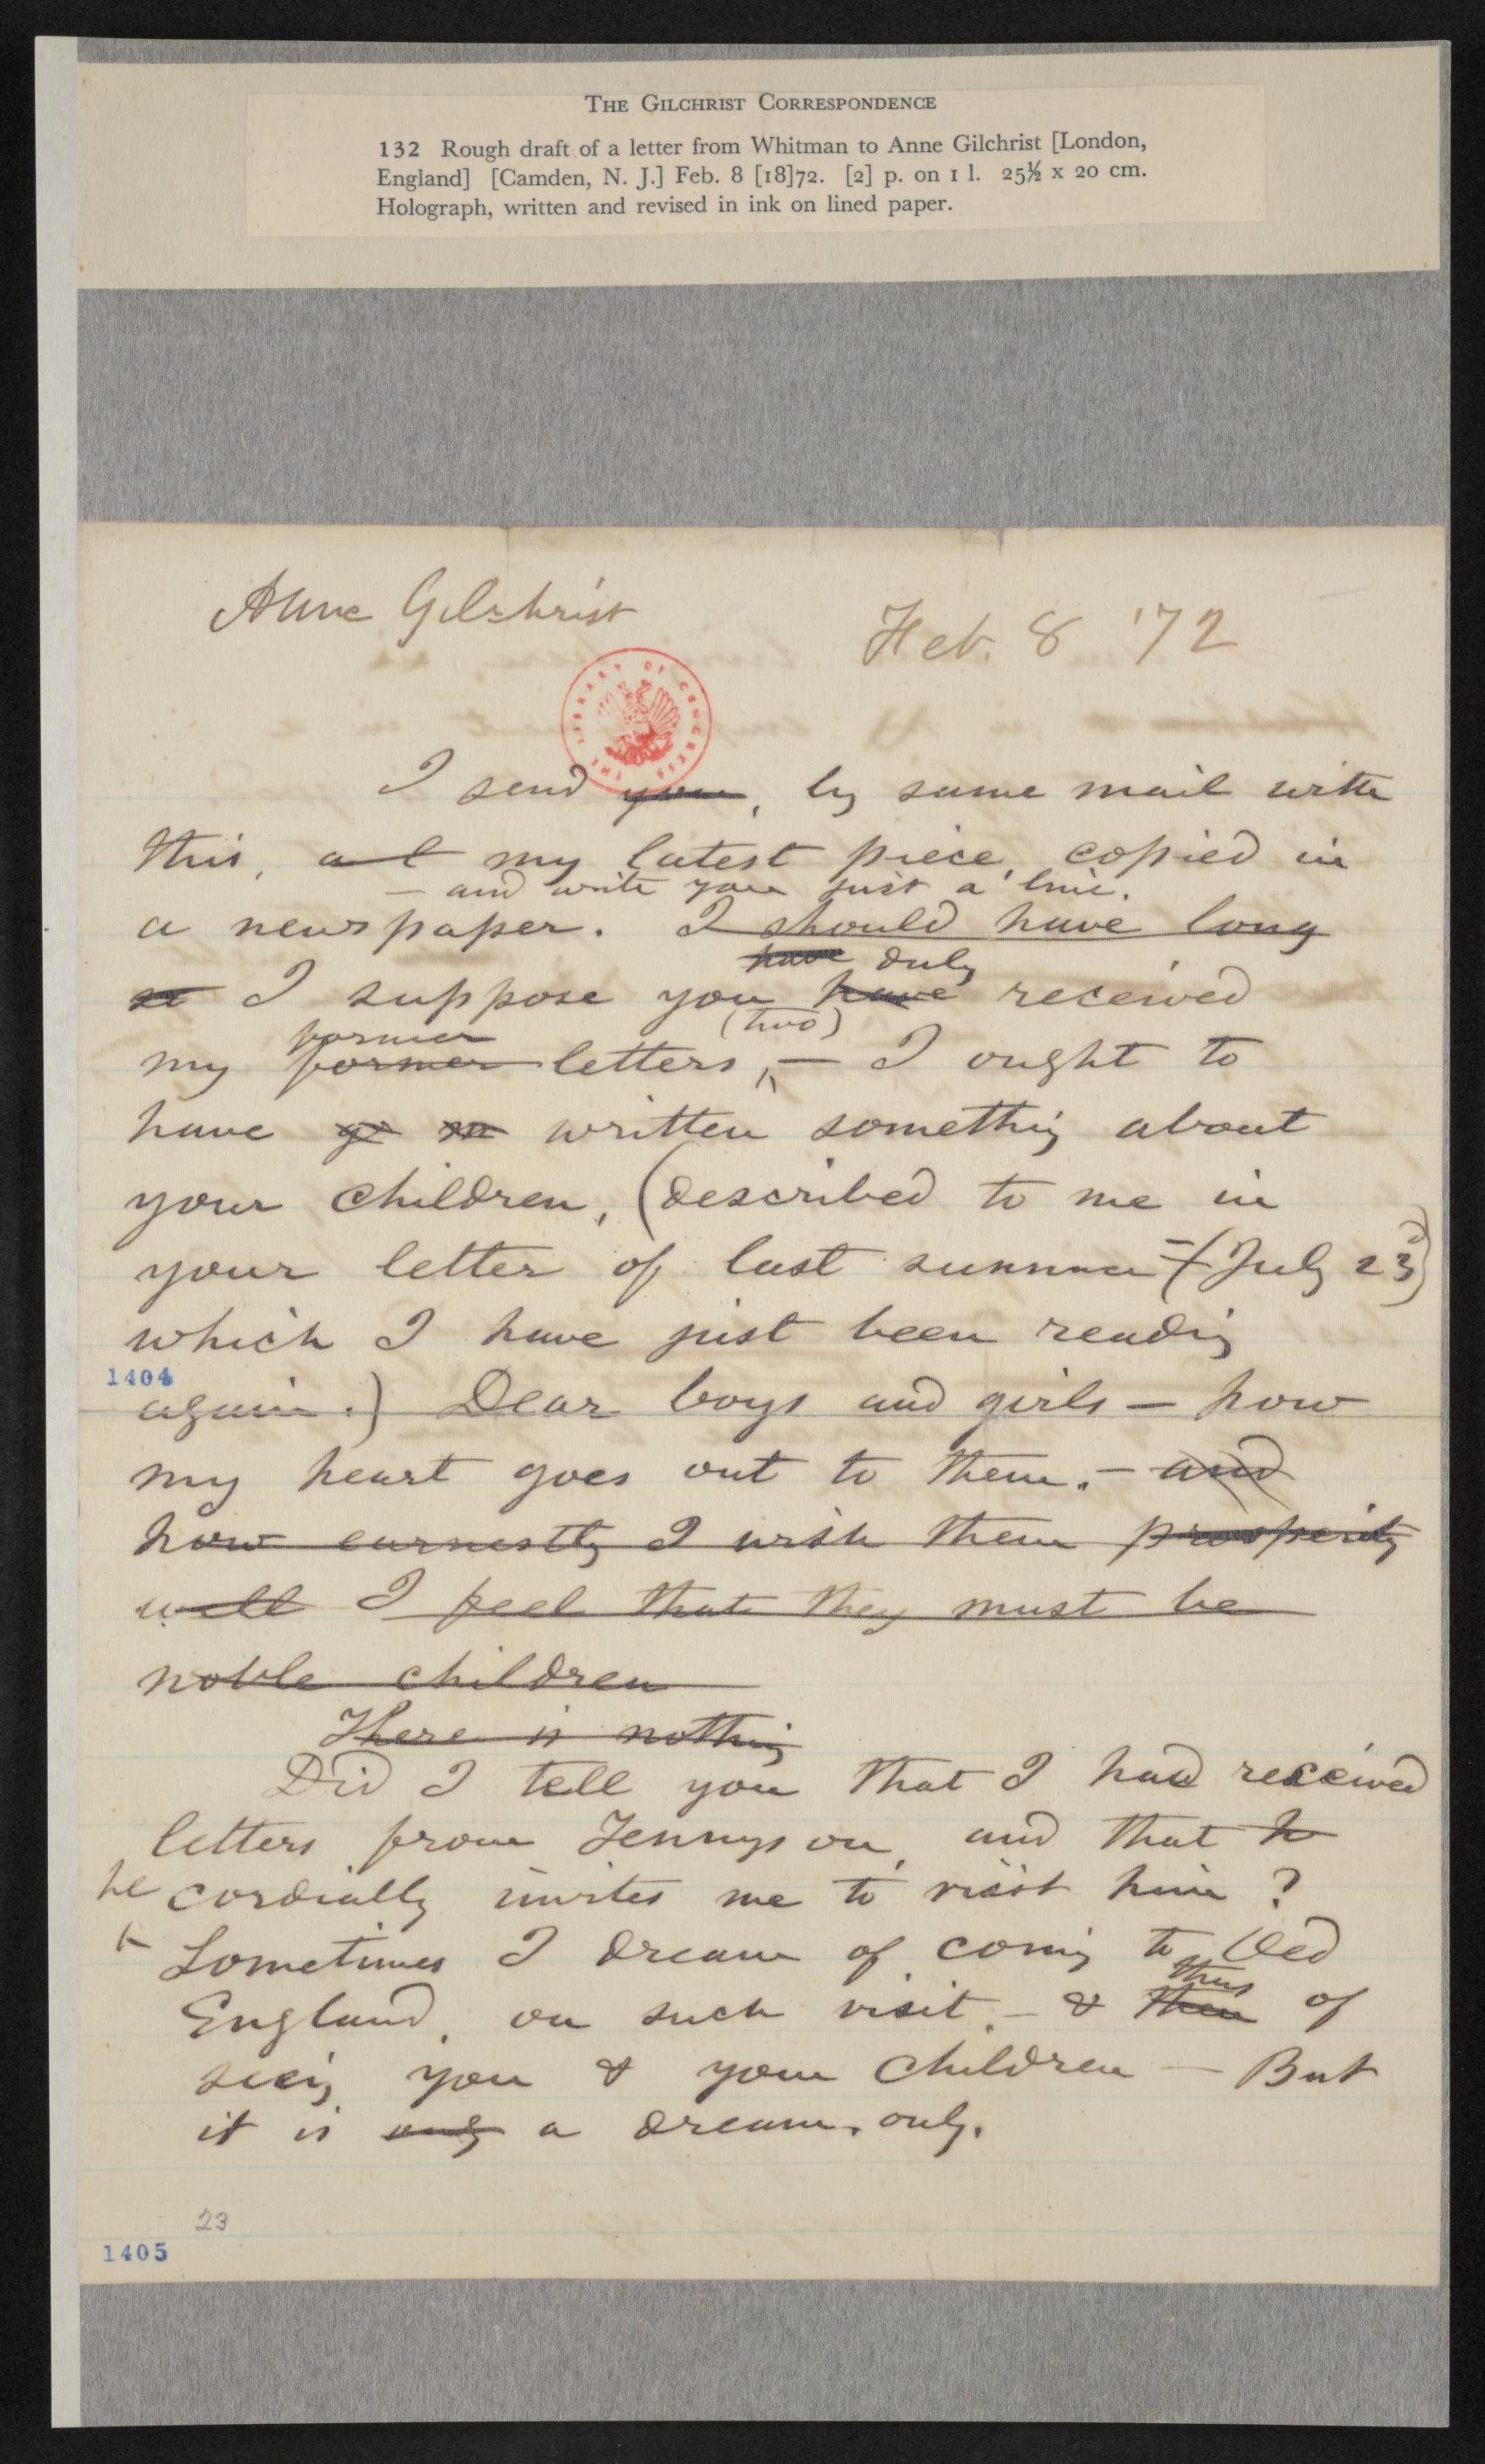 THE GILCHRIST CORRESPONDENCE
132 Rough draft of a letter from Whitman to Anne Gilchrist [London,
England] [Camden, N. J.] Feb. 8 [18]72. [2] p. on 1 l. 25½ x 20 cm.
Holograph, written and revised in ink on lined paper.
Anne Gilchrist
Feb. 8 '72
THE LIBRARY OF CONGRESS
I send you, by same mail with
this, my latest piece, copied in
— and write you just a line.
a newspaper. I should have long
have duly
I suppose you have received
former (two)
my former letters, — I ought to
have written somethig about
your children, (described to me in
your letter of last summer — (July 23)
which I have just been readig
1404
again.) Dear boys and girls — how
my heart goes out to them. — and
how earnestly I wish them prosperity
well I feel that they must be
noble children
There is nothig
Did I tell you that I had received
letters from Tennyson, and that h
he cordially invites me to visit him?
Sometimes I dream of comig to Old
thus
England, on such visit, — & then of
seeig you & your children — But
it is only a dream, only.
23
1405